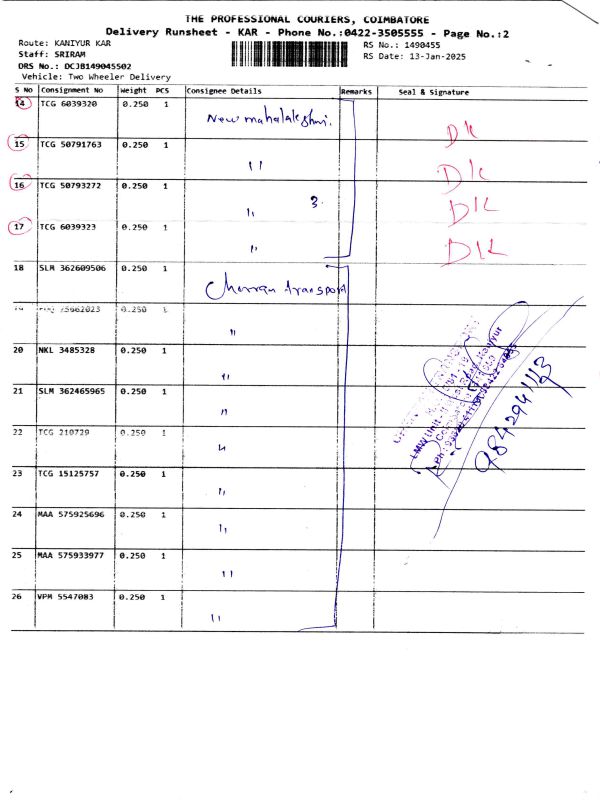 THE PROFESSIONAL COURIERS, COIMBATORE
Delivery Runsheet - KAR - Phone No.:0422-3505555 - Page No.:2
Route: KANIYUR KAR
RS No.: 1490455
Staff: SRIRAM
RS Date: 13-Jan-2025
DRS No.: DCJB149045502
Vehicle: Two Wheeler Delivery
S No Consignment No Weight PCS Consignee Details Remarks Seal & Signature
14 TCG 6039320 0.250 1 New mahalakshmi. DK
15 TCG 50791763 0.250 1 " DK
16 TCG 50793272 0.250 1 " 3 DK
17 TCG 6039323 0.250 1 " DK
18 SLM 362609506 0.250 1 Cherran transport
19 0.250 1 "
20 NKL 3485328 0.250 1 "
21 SLM 362465965 0.250 1 "
22 TCG 210729 0.250 1 "
23 TCG 15125757 0.250 1 "
24 MAA 575925696 0.250 1 "
25 MAA 575933977 0.250 1 "
26 VPM 5547083 0.250 1 "
LMW Unit